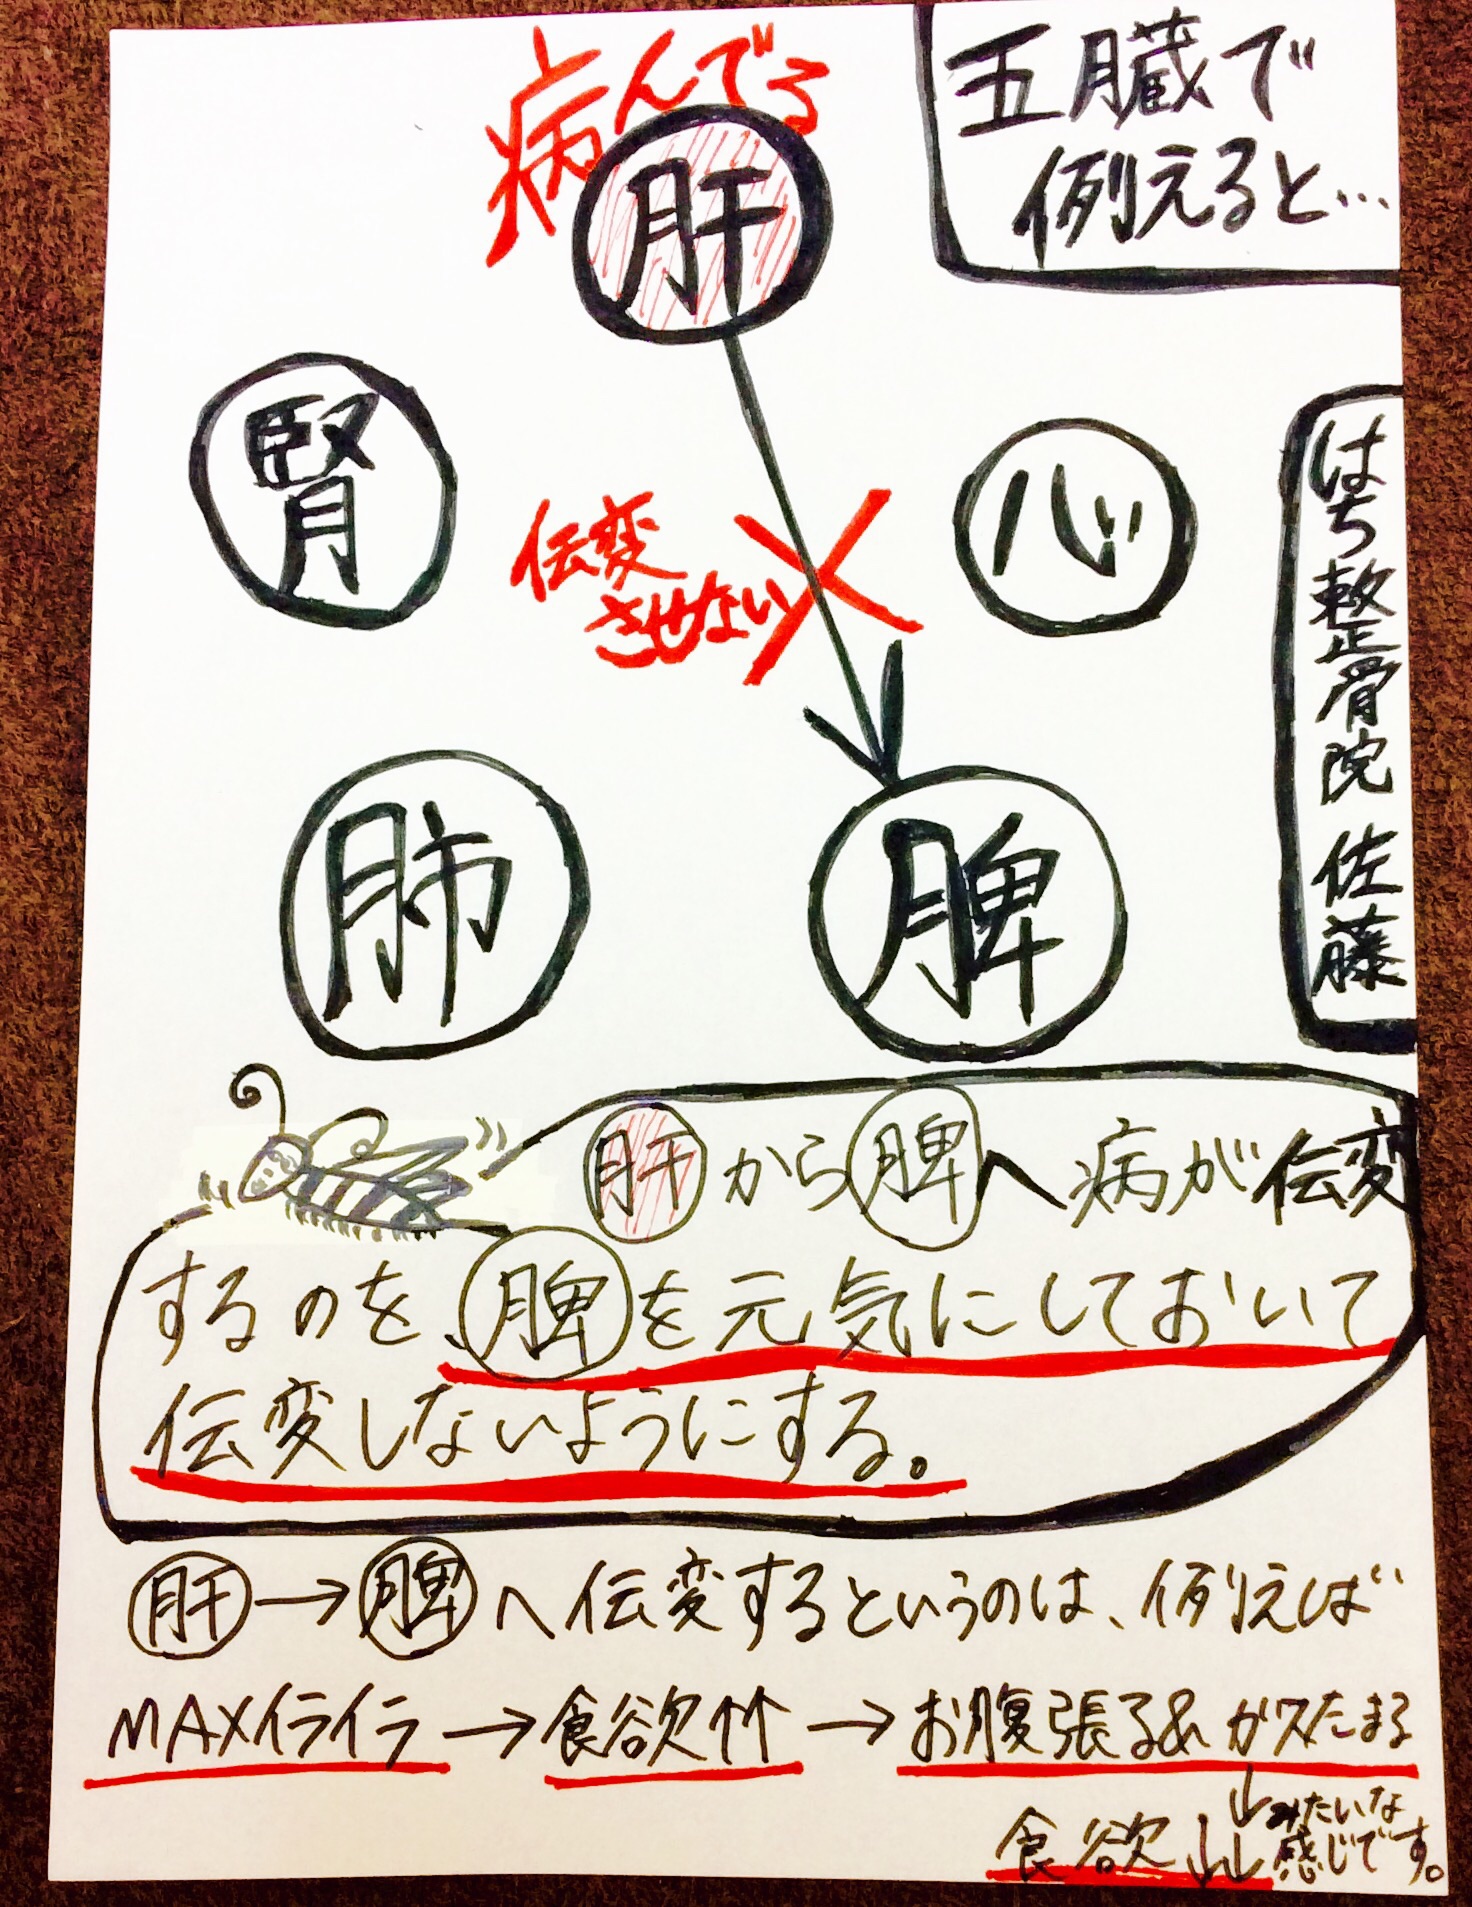 五臓で
例えると…
病んでる
肝
腎
心
伝変
させない
肺
脾
はち整骨院 佐藤
肝から脾へ病が伝変
するのを、脾を元気にしておいて
伝変しないようにする。
肝→脾へ伝変するというのは、例えば
MAXイライラ→食欲↑↑→お腹張る&ガスたまる
↓
食欲↓↓みたいな
感じです。